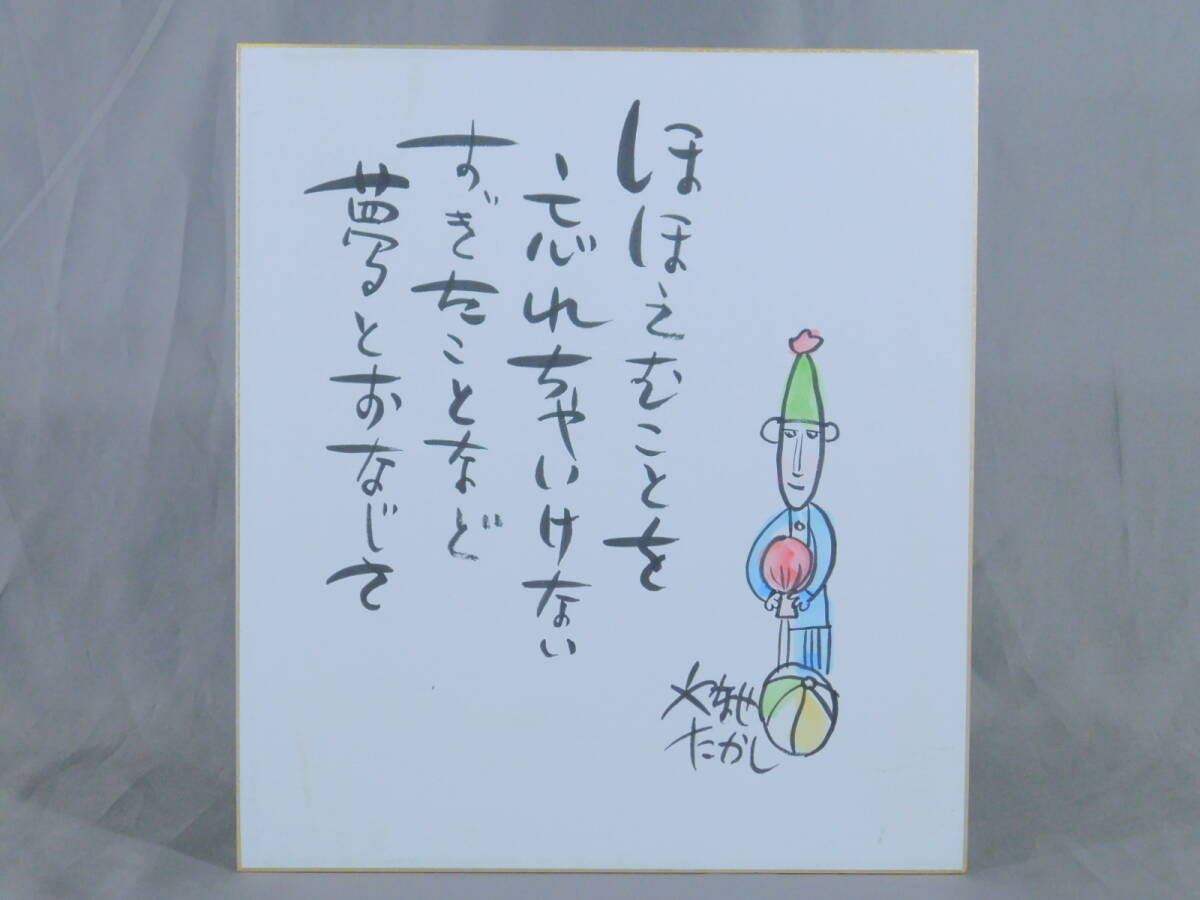 ほほえむことを
忘れちゃいけない
すぎたことなど
夢とおなじさ
やなせ
たかし